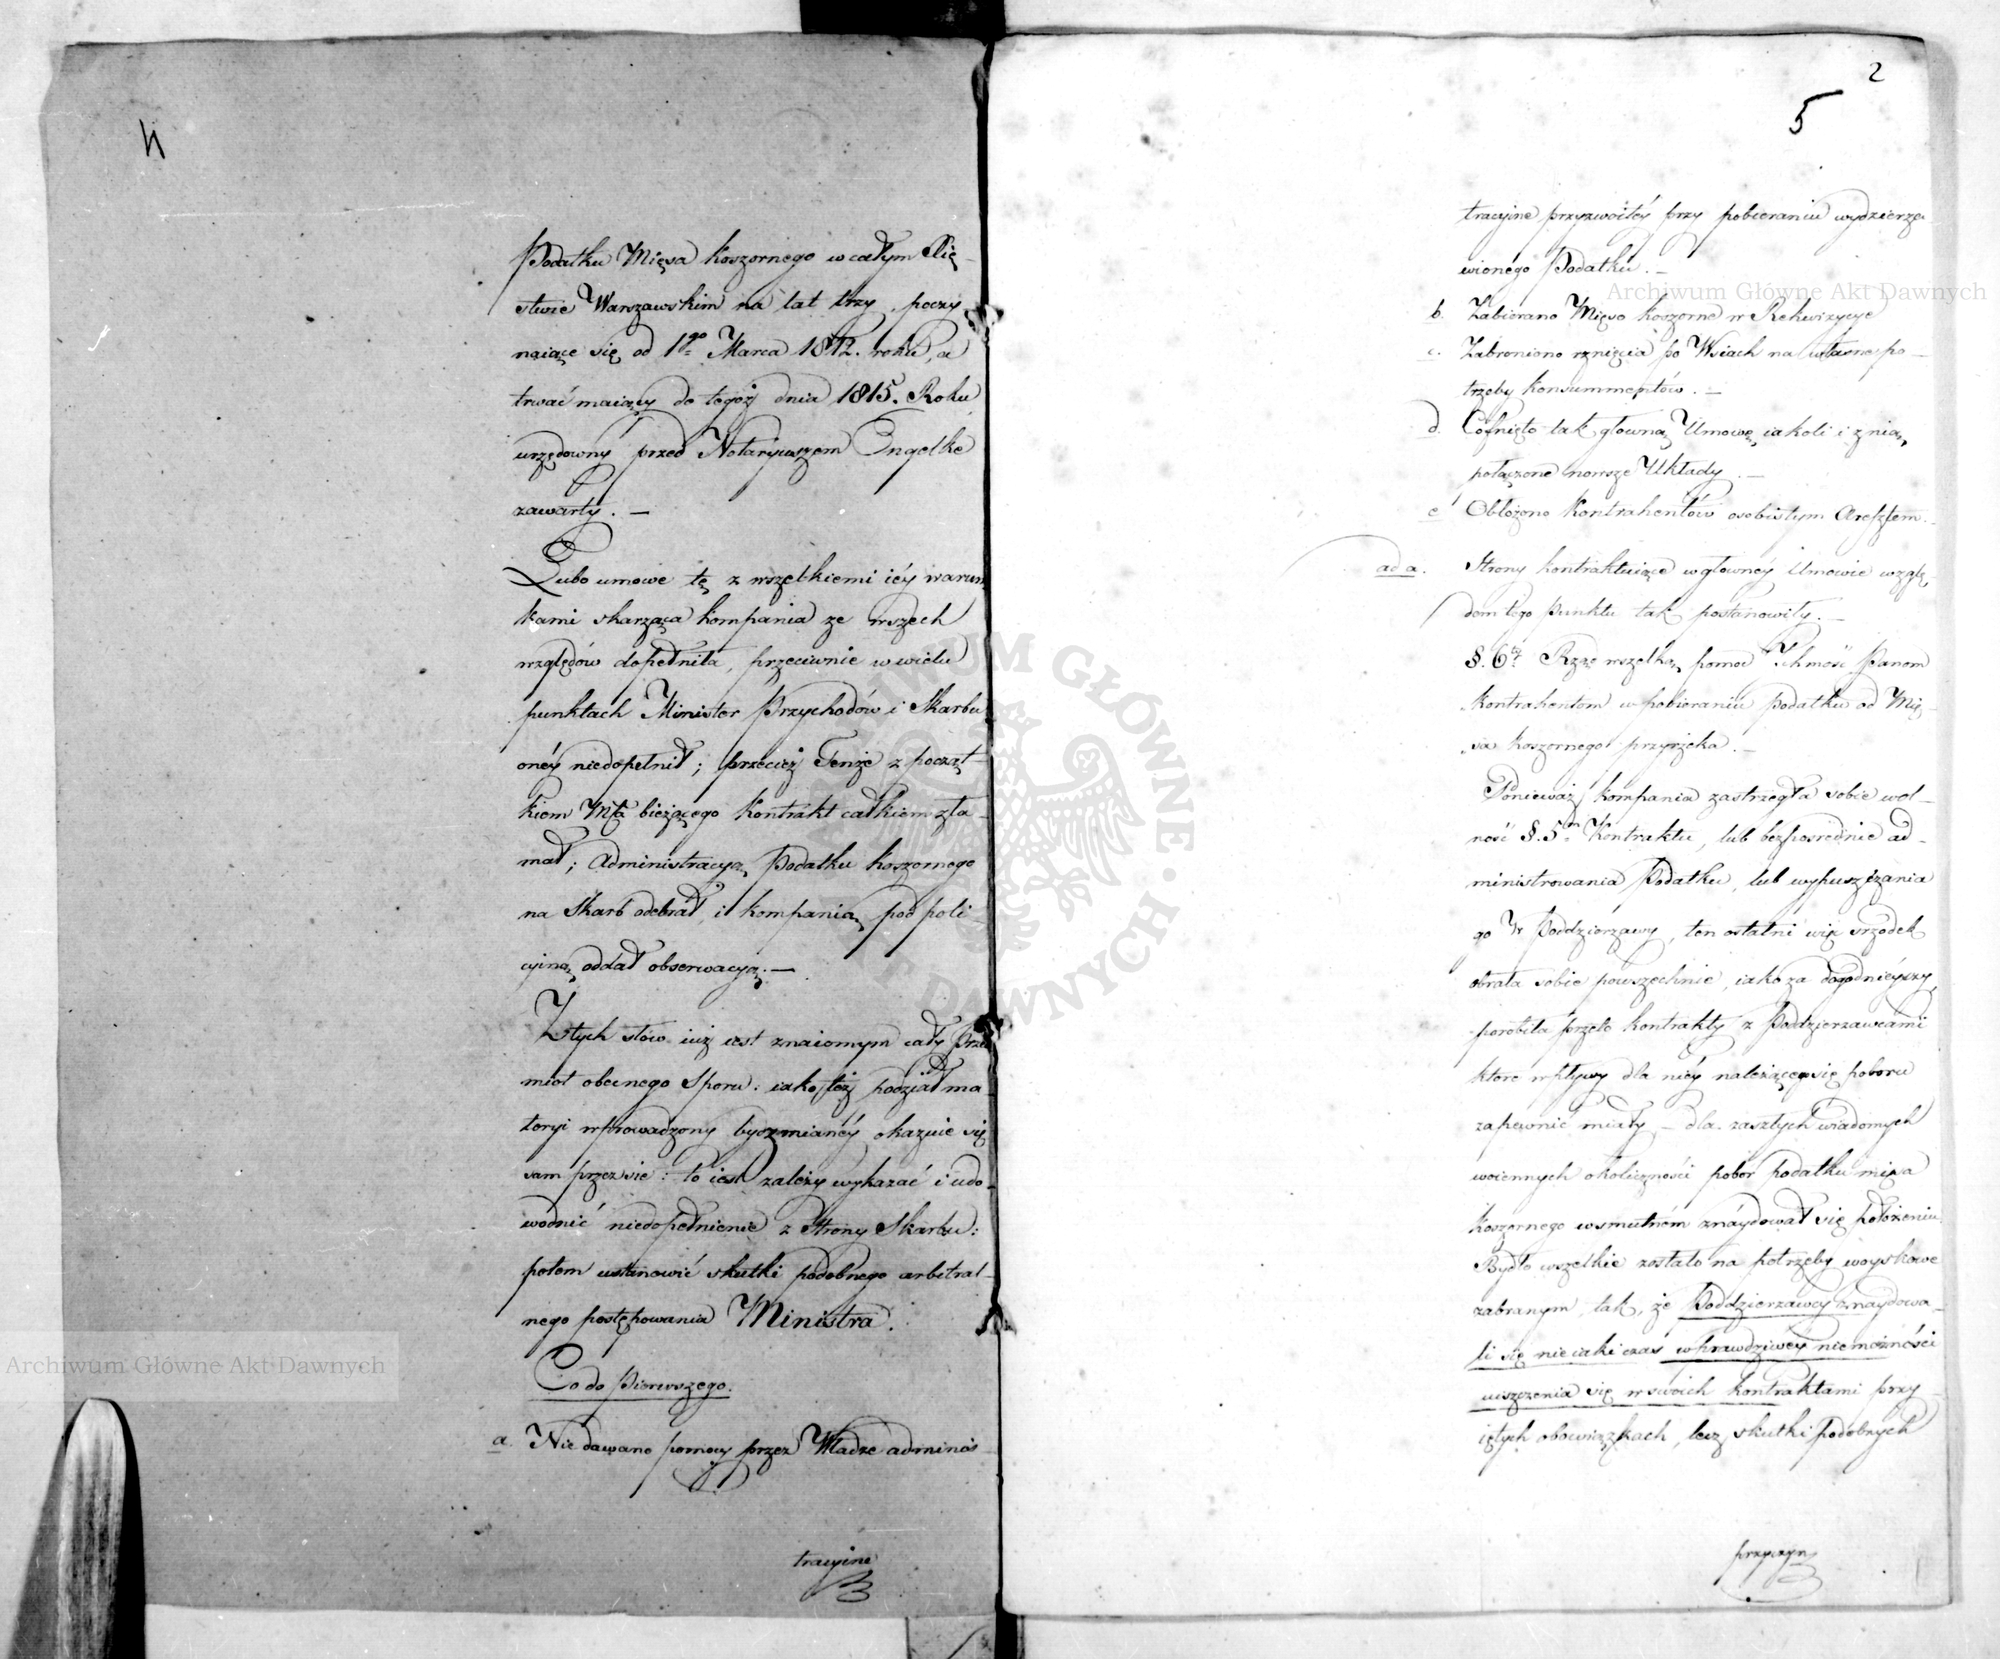 4
Podatku Mięsa koszernego w całym Xię-
stwie Warszawskim na lat trzy, poczy
naiące się od 1go Marca 1812. roku, a
trwać maiący do tegoż dnia 1815. Roku
urzędowny przed Notaryuszem Engelke
zawarty. —
Lubo umowe tę z wszelkiemi iéy warun
kami skarząca kompania ze wszech
względów dopełniła, przeciwnie w wielu
punktach Minister Przychodów i Skarbu
onéy niedopełnił; przecież Tenże z począt-
kiem Mca bieżącego Kontrakt całkiem zła-
mał; Administracyą Podatku koszernego
na Skarb odebrał, i kompanią pod poli
cyiną oddał obserwacyą. —
Z tych słów iuż iest znaiomym cały Przed
miot obecnego Sporu: iako też podział ma
teryi wprowadzony bydź mianéy okazuie się
sam przez sie: to iest należy wykazać i udo-
wodnić niedopełnienie z Strony Skarbu:
potem ustanowić skutki podobnego arbitral-
nego postępowania Ministra.
Co do Pierwszego.
a. Nie dawano pomocy przez Władze adminis-
tracyine
2
5
tracyine przyzwoitéy przy pobieraniu wydzierża-
wionego Podatku. —
b. Zabierano Mięso koszerne w Rekwizycye
c. Zabroniono rznięcia po Wsiach na własne po-
trzeby konsummentów. —
d. Cofnięto tak główną Umowę, iakoli i z nią
połączone nowsze Układy. —
e Obłożono Kontrahentów osobistym Aresztem. —
ad a. Strony kontraktuiące w głównéy Umowie wzglę-
dem tego Punktu tak postanowiły. —
§. 6ty Rząd wszelką pomoc Ichmość Panom
Kontrahentom w pobieraniu podatku od Mię-
sa koszernego przyrzeka. —
Ponieważ kompania zastrzegła sobie wol-
ność §. 5m Kontraktu, lub bezpośrednie ad-
ministrowania Podatku, lub wypuszczania
go w Poddzierzawy, ten ostatni więc srzodek
obrała sobie powszechnie, iako za dogodnieyszy
porobiła przeto kontrakty z Poddzierzawcami
ktore wpływy dla niéy należącego się poboru
zapewnić miały, — dla zaszłych wiadomych
woiennych okoliczności pobor podatku mięsa
koszernego w smutném znáydował się położeniu.
Bydło wszelkie zostało na potrzeby woyskowe
zabranym, tak, że Poddzierzawcy znaydowa-
li się nieiaki czas w prawdziwey niemożności
uiszczenia się w swoich kontraktami przy-
iętych obowiązkach, lecz skutki podobnych
przyczyn
Archiwum Główne Akt Dawnych
Archiwum Główne Akt Dawnych
ARCHIWUM GŁÓWNE AKT DAWNYCH